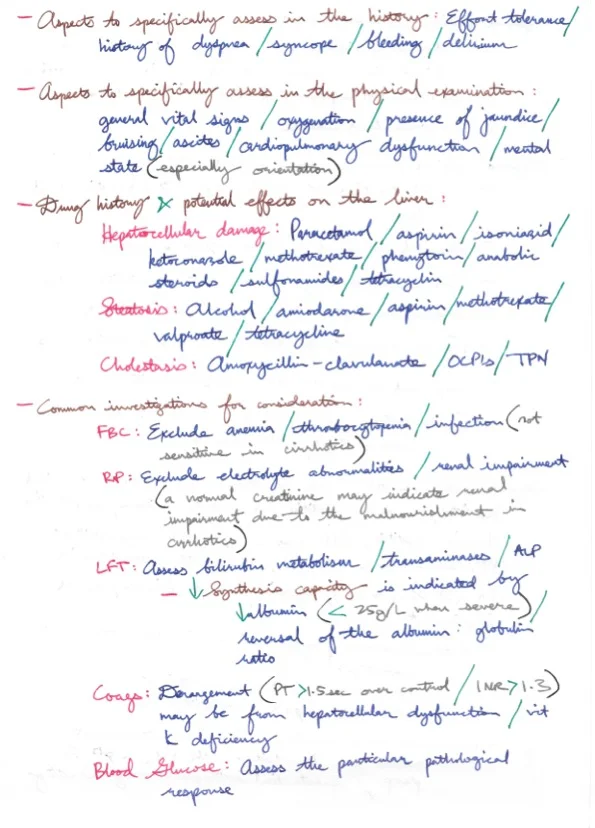 – Aspects to specifically assess in the history: Effort tolerance/
history of dyspnea/syncope/bleeding/delirium
– Aspects to specifically assess in the physical examination:
general vital signs/oxygenation/presence of jaundice/
bruising/ascites/cardiopulmonary dysfunction/mental
state (especially orientation)
– Drug history & potential effects on the liver:
Hepatocellular damage: Paracetamol/aspirin/isoniazid/
ketoconazole/methotrexate/phenytoin/anabolic
steroids/sulfonamides/tetracyclin
Steatosis: Alcohol/amiodarone/aspirin/methotrexate/
valproate/tetracycline
Cholestasis: Amoxycillin-clavulanate/OCPIs/TPN
– Common investigations for consideration:
FBC: Exclude anemia/thrombocytopenia/infection (not
sensitive in cirrhotics)
RP: Exclude electrolyte abnormalities/renal impairment
(a normal creatinine may indicate renal
impairment due to the malnourishment in
cirrhotics)
LFT: Assess bilirubin metabolism/transaminases/ALP
– ↓Synthesis capacity is indicated by
↓albumin (<25g/L when severe)/
reversal of the albumin:globulin
ratio
Coags: Derangement (PT>1.5sec over control/INR>1.3)
may be from hepatocellular dysfunction/vit
K deficiency
Blood Glucose: Assess the particular pathological
response